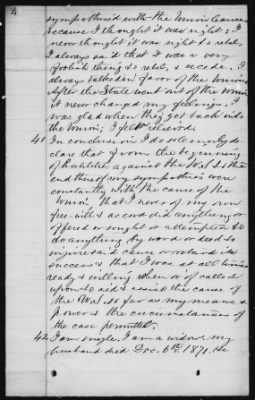 4
sympathized with the Union Cause
because I thought it was right & I
never thought it was right to rebel.
I always said that it was a very
foolish thing to rebel, & secede. I
always talked in favor of the Union
After the State went out of the Union
it never changed my feelings. I
was glad when they got back into
the Union, I felt relieved.
41 In conclusion I do solemnly de
clare that from the beginning
of hostilities against the U.S. to the
end thereof my sympathies were
constantly with the cause of the
Union, that I never of my own
free-will & accord did anything or
offered or sought or attempted to
do anything by word or deed to
injure said cause or retard its
success & that I was at all times
ready & willing when or if called
upon to aid & assist the cause of
the U.S. so far as my means &
power & the circumstances of
the case permitted.
42 I am single, I am a widow, my
husband died Dec. 6th 1871. He